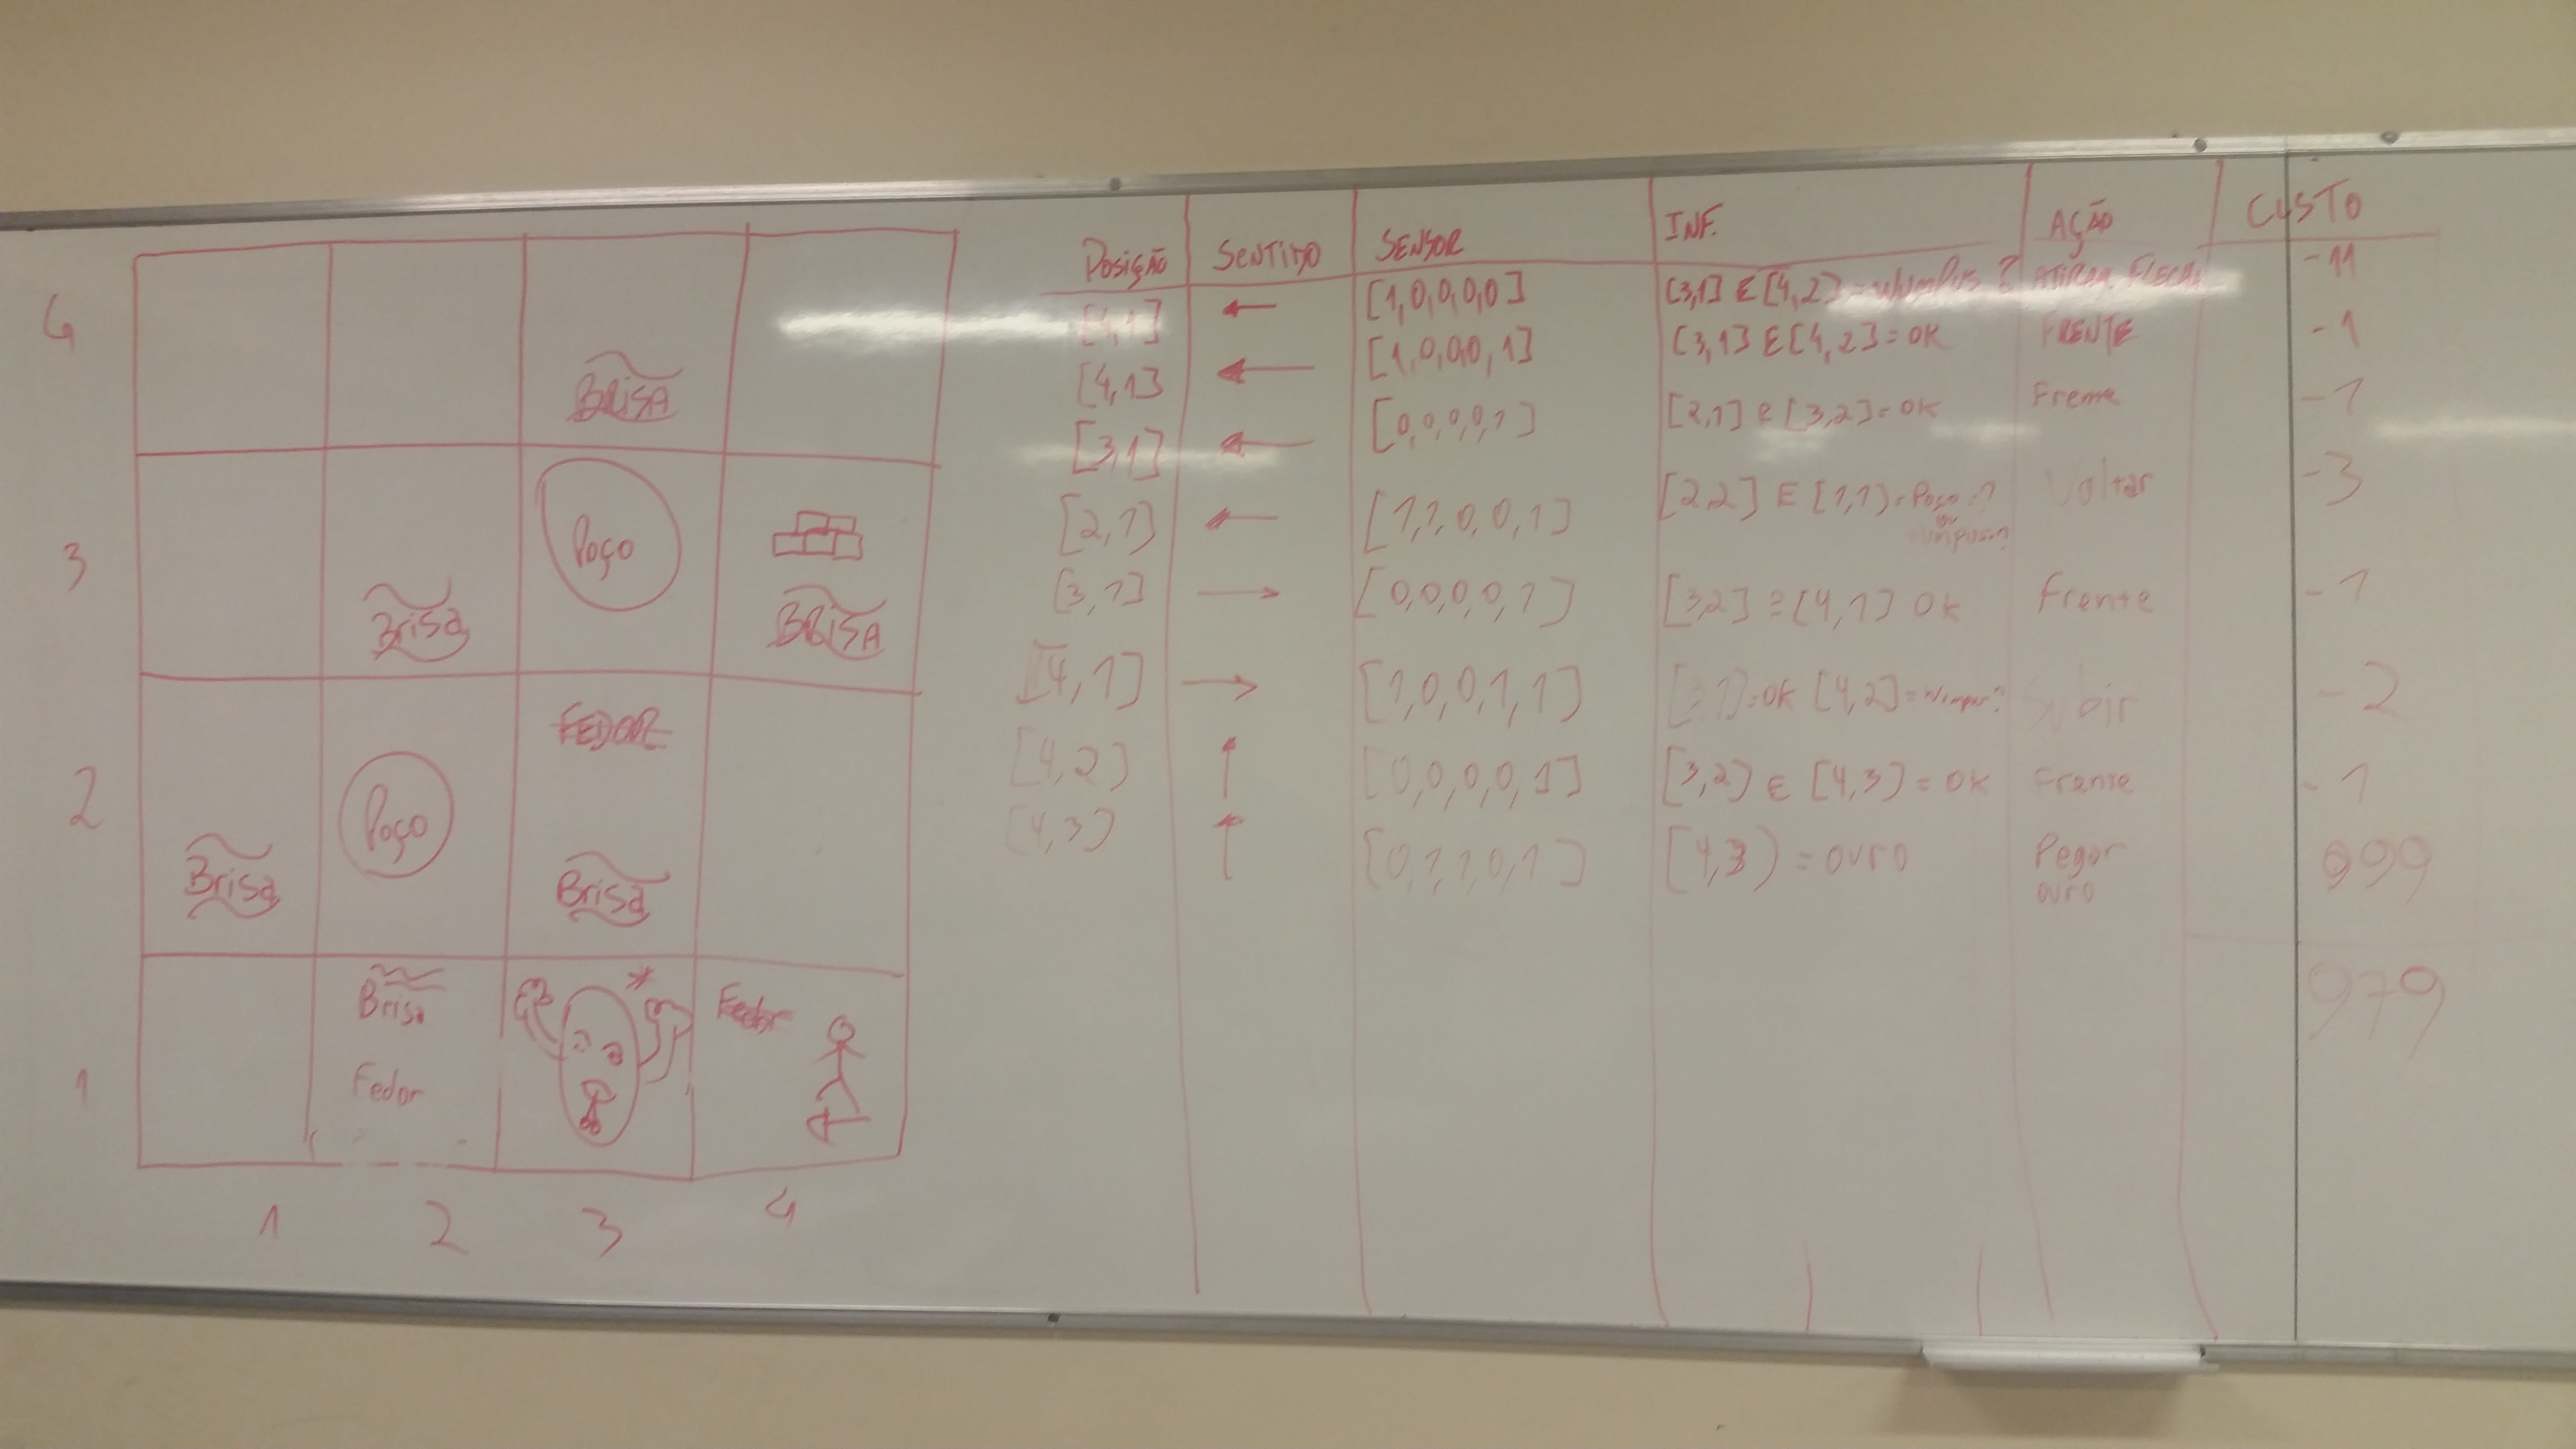 4
BRISA
3
Brisa
Poço
BRISA
2
Brisa
Poço
FEDOR
Brisa
1
Brisa
Fedor
Fedor
1 2 3 4
POSIÇÃO SENTIDO SENSOR INF. AÇÃO CUSTO
[4,1] ← [1,0,0,0,0] [3,1] E [4,2] = WUMPUS ? ATIRAR FLECHA -11
[4,1] ← [1,0,0,0,1] [3,1] E [4,2] = OK FRENTE -1
[3,1] ← [0,0,0,0,1] [2,1] e [3,2] = OK Frente -1
[2,1] ← [1,1,0,0,1] [2,2] E [1,1] = Poço ? Voltar -3
ou
[3,1] → [0,0,0,0,1] [3,2] e [4,1] OK Frente -1
[4,1] → [1,0,0,1,1] [3,1] = OK [4,2] = Subir -2
[4,2] ↑ [0,0,0,0,1] [3,2] E [4,3] = OK Frente -1
[4,3] ↑ [0,1,1,0,1] [4,3] = OURO Pegar ouro 999
979